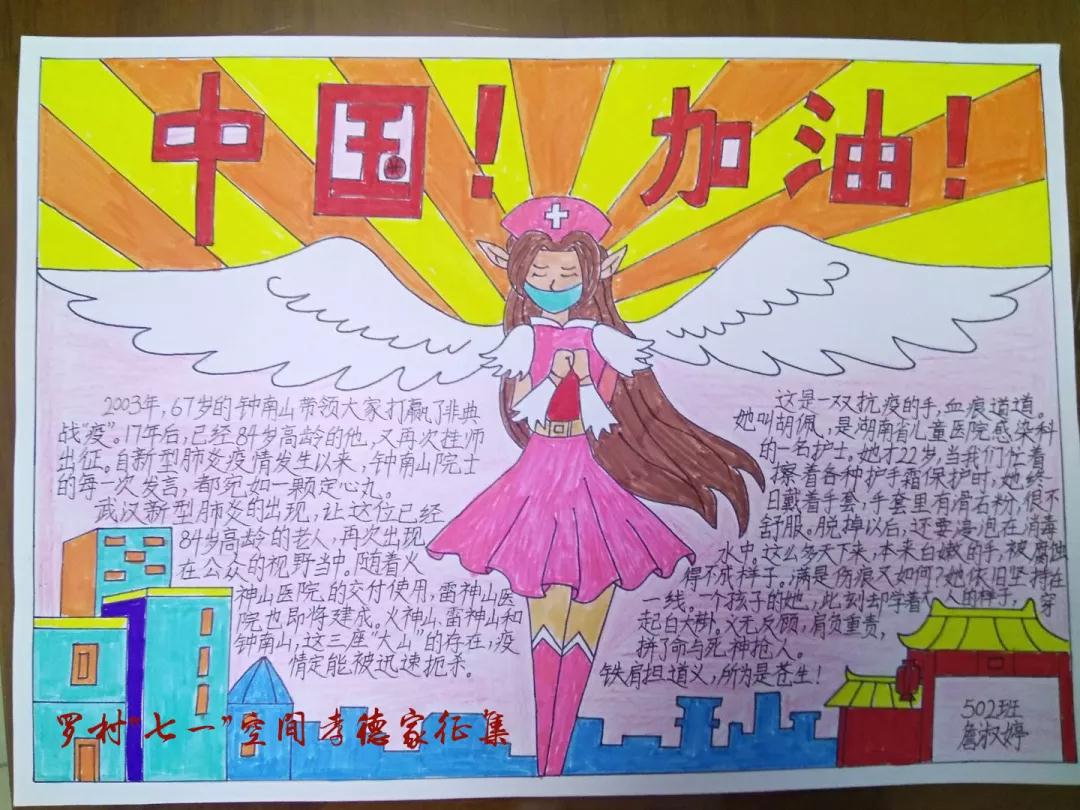 中国！加油！
2003年，67岁的钟南山带领大家打赢了非典
战“疫”。17年后，已经84岁高龄的他，又再次挂师
出征。自新型肺炎疫情发生以来，钟南山院士
的每一次发言，都宛如一颗定心丸。
武汉新型肺炎的出现，让这位已经
84岁高龄的老人，再次出现
在公众的视野当中。随着火
神山医院的交付使用，雷神山医
院也即将建成。火神山、雷神山和
钟南山，这三座“大山”的存在，疫
情定能被迅速扼杀。
这是一双抗疫的手，血痕道道。
她叫胡佩，是湖南省儿童医院感染科
的一名护士。她才22岁，当我们忙着
擦着各种护手霜保护时，她终
日戴着手套，手套里有滑石粉，很不
舒服。脱掉以后，还要浸泡在消毒
水中。这么多天下来，本来白嫩的手，被腐蚀
得不成样子。满是伤痕又如何？她依旧坚持在
一线。一个孩子的她，此刻却学着人的样子，穿
起白大褂。义无反顾，肩负重责，
拼了命与死神抢人。
铁肩担道义，所为是苍生！
502班
詹淑婷
罗村“七一”空间孝德家征集